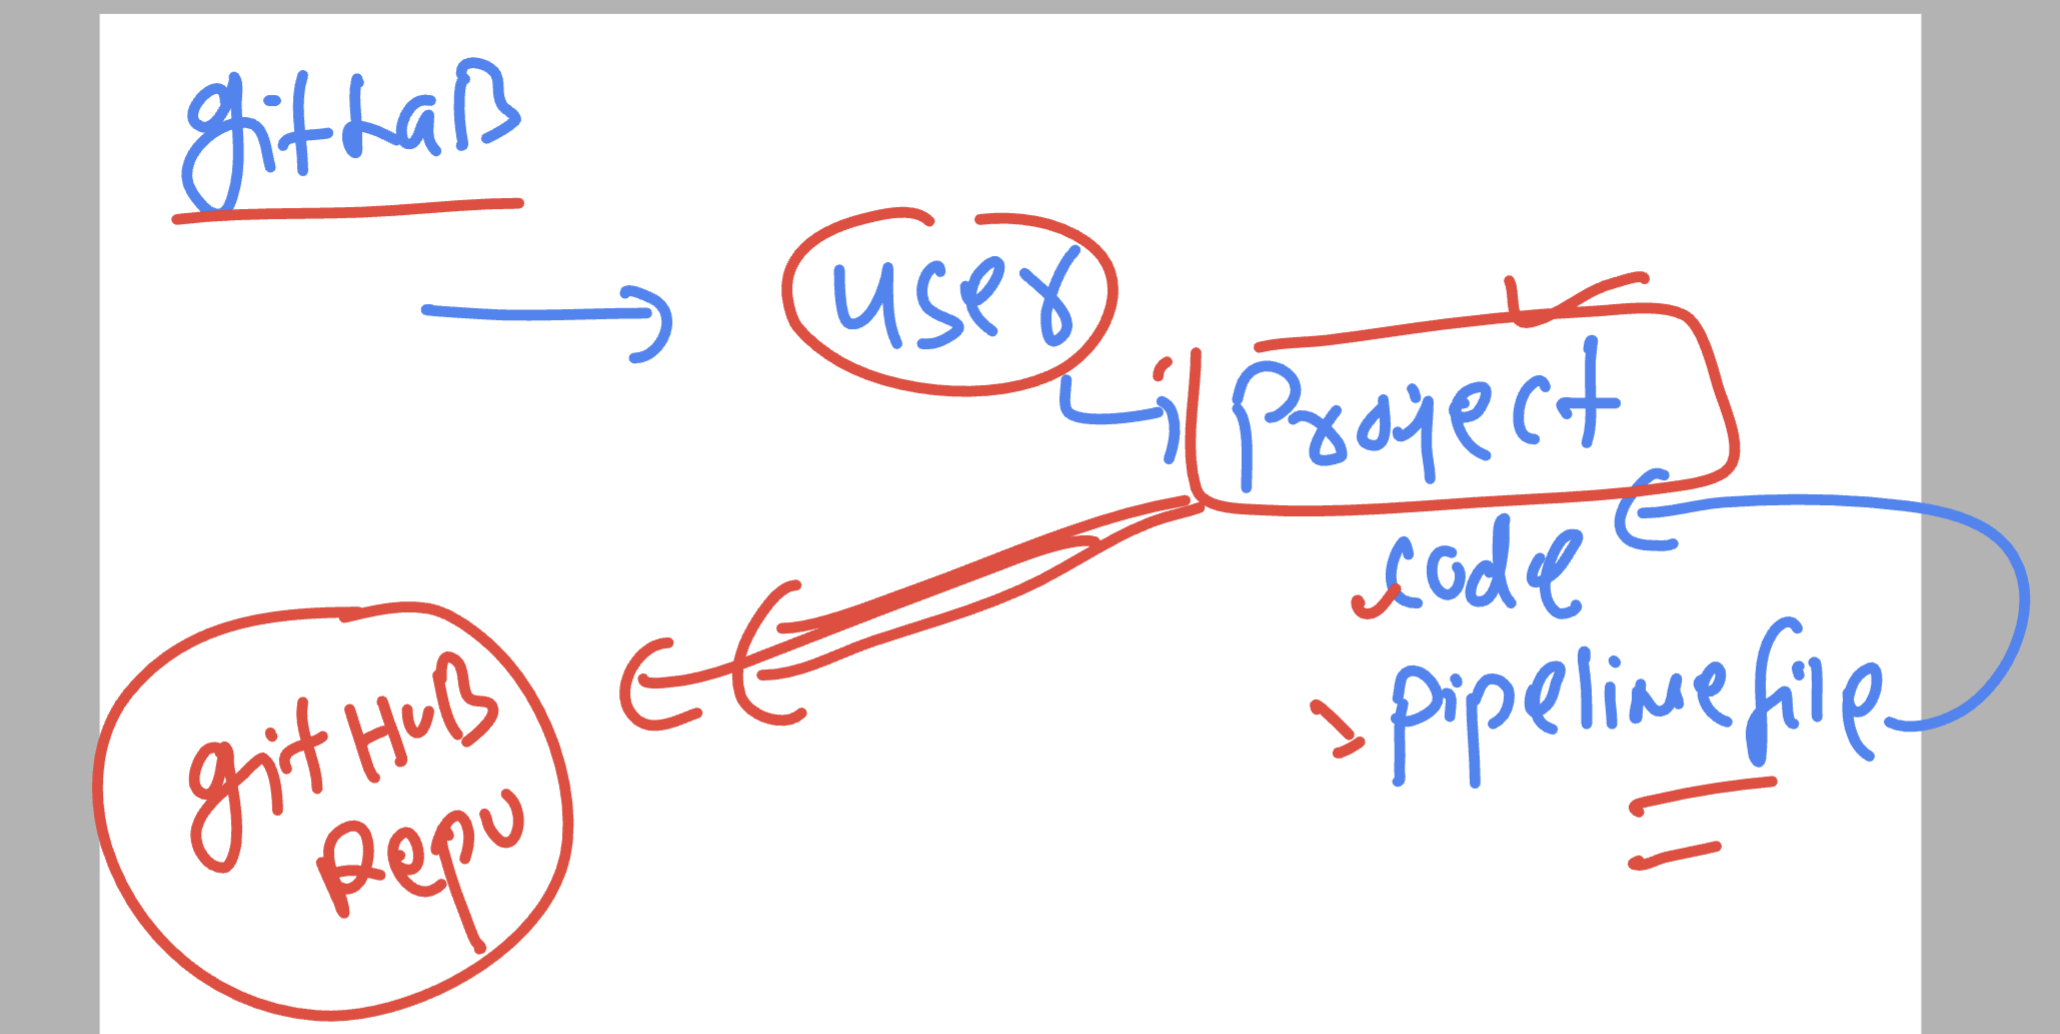 gitLaB
user
Project
code
pipeline file
gitHuB
Repo